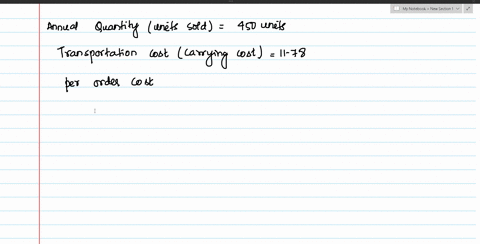 My Notebook » New Section 1
Annual Quantity (units sold) = 450 units
Transportation cost (carrying cost) = 11-78
per order cost